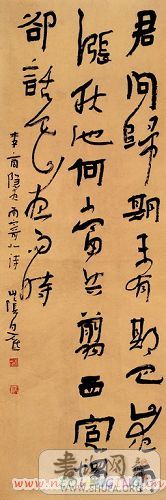 君問歸期未有期巴山夜雨
漲秋池何當共翦西窗燭
卻話巴山夜雨時
李商隱夜雨寄北詩